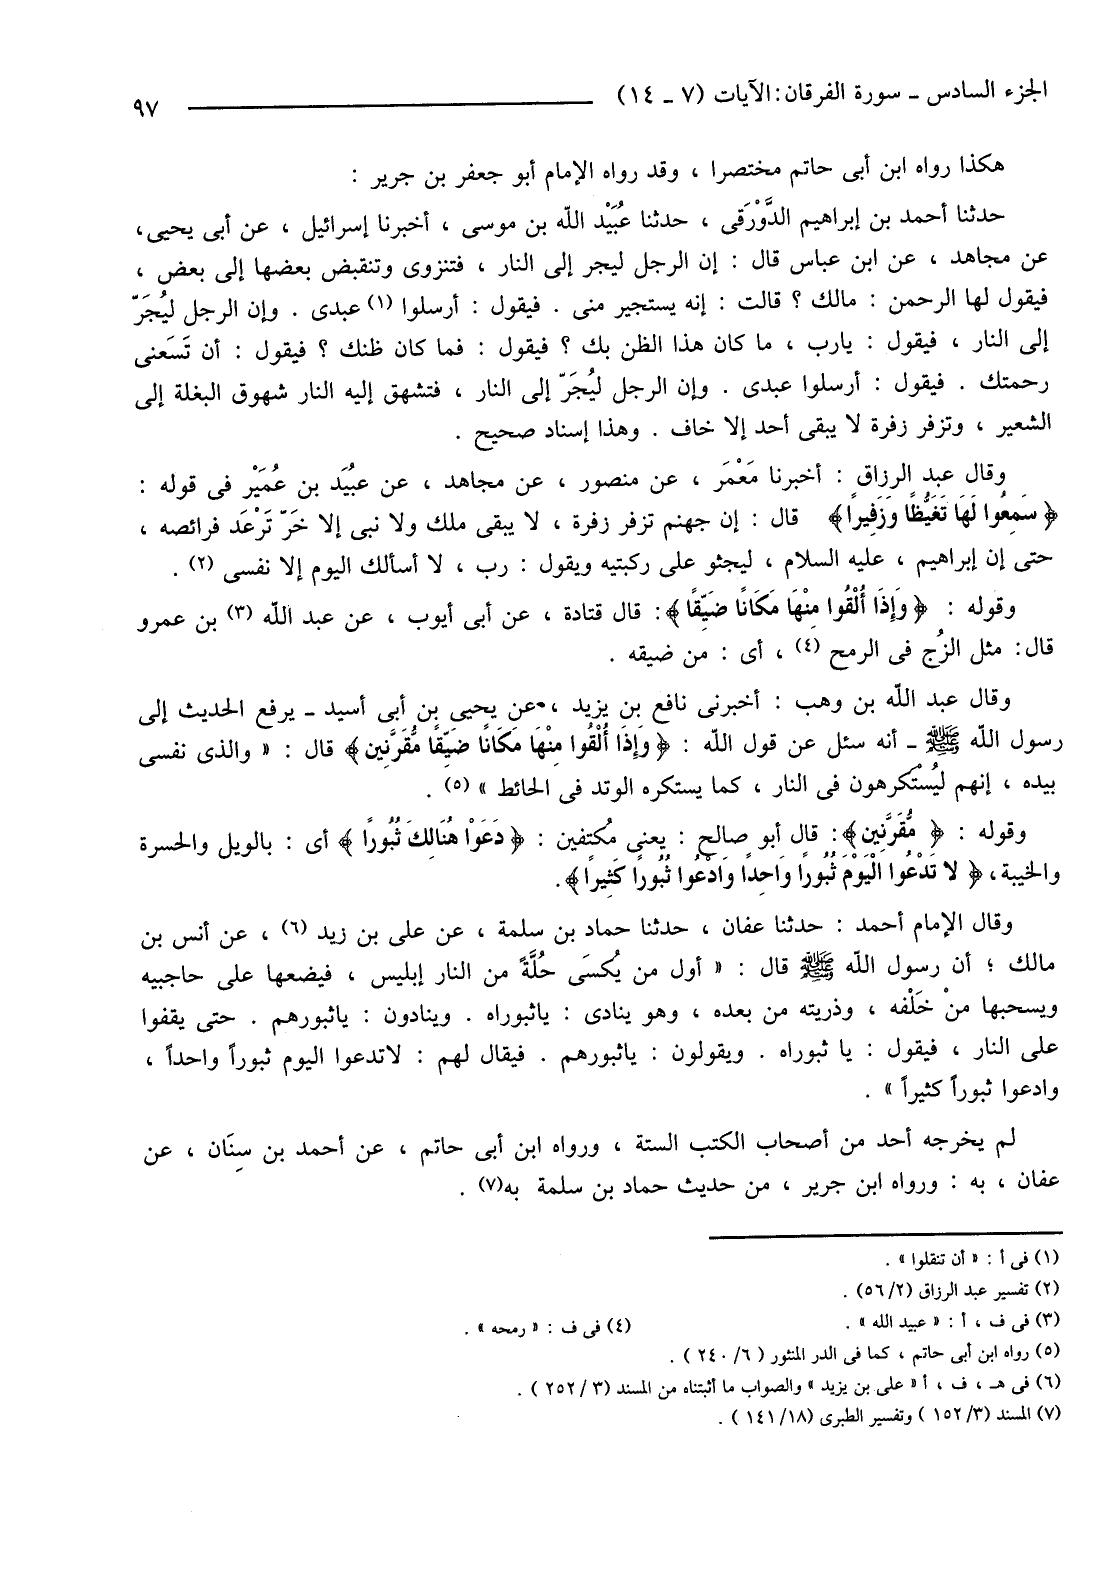 الجزء السادس ـ سورة الفرقان: الآيات (٧ ـ ١٤) ٩٧
هكذا رواه ابن أبى حاتم مختصرا ، وقد رواه الإمام أبو جعفر بن جرير :
حدثنا أحمد بن إبراهيم الدَّوْرَقى ، حدثنا عُبَيْد الله بن موسى ، أخبرنا إسرائيل ، عن أبى يحيى،
عن مجاهد ، عن ابن عباس قال : إن الرجل ليجر إلى النار ، فتنزوى وتنقبض بعضها إلى بعض ،
فيقول لها الرحمن : مالك ؟ قالت : إنه يستجير منى . فيقول : أرسلوا (١) عبدى . وإن الرجل ليُجَرّ
إلى النار ، فيقول : يارب ، ما كان هذا الظن بك ؟ فيقول : فما كان ظنك ؟ فيقول : أن تَسَعنى
رحمتك . فيقول : أرسلوا عبدى . وإن الرجل ليُجَرّ إلى النار ، فتشهق إليه النار شهوق البغلة إلى
الشعير ، وتزفر زفرة لا يبقى أحد إلا خاف . وهذا إسناد صحيح .
وقال عبد الرزاق : أخبرنا مَعْمَر ، عن منصور ، عن مجاهد ، عن عبُيَد بن عُمَيْر فى قوله :
﴿ سَمِعُوا لَهَا تَغَيُّظًا وَزَفِيراً﴾ قال : إن جهنم تزفر زفرة ، لا يبقى ملك ولا نبى إلا خَرّ تَرْعَد فرائصه ،
حتى إن إبراهيم ، عليه السلام ، ليجثو على ركبتيه ويقول : رب ، لا أسألك اليوم إلا نفسى (٢) .
وقوله : ﴿ وَإِذَا أُلْقُوا مِنْهَا مَكَانًا ضَيِّقًا ﴾: قال قتادة ، عن أبى أيوب ، عن عبد الله (٣) بن عمرو
قال: مثل الزُج فى الرمح (٤) ، أى : من ضيقه .
وقال عبد الله بن وهب : أخبرنى نافع بن يزيد ، عن يحيى بن أبى أسيد ـ يرفع الحديث إلى
رسول الله ﷺ ـ أنه سئل عن قول الله : ﴿ وَإِذَا أُلْقُوا مِنْهَا مَكَانًا ضَيِّقًا مُّقَرَّنِين ﴾ قال : « والذى نفسى
بيده ، إنهم ليُسْتَكرهون فى النار ، كما يستكره الوتد فى الحائط » (٥) .
وقوله : ﴿ مُّقَرَّنِين ﴾: قال أبو صالح : يعنى مكتفين : ﴿ دَعَوْا هُنَالِكَ ثُبُوراً ﴾ أى : بالويل والحسرة
والخيبة، ﴿ لا تَدْعُوا الْيَوْمَ ثُبُوراً وَاحِدًا وَادْعُوا ثُبُوراً كَثِيراً ﴾.
وقال الإمام أحمد : حدثنا عفان ، حدثنا حماد بن سلمة ، عن على بن زيد (٦) ، عن أنس بن
مالك ؛ أن رسول الله ﷺ قال : « أول من يُكسَى حُلَّةً من النار إبليس ، فيضعها على حاجبيه
ويسحبها منْ خَلْفه ، وذريته من بعده ، وهو ينادى : ياثبوراه . وينادون : ياثبورهم . حتى يقفوا
على النار ، فيقول : يا ثبوراه . ويقولون : ياثبورهم . فيقال لهم : لاتدعوا اليوم ثبوراً واحداً ،
وادعوا ثبوراً كثيراً » .
لم يخرجه أحد من أصحاب الكتب الستة ، ورواه ابن أبى حاتم ، عن أحمد بن سِنَان ، عن
عفان ، به : ورواه ابن جرير ، من حديث حماد بن سلمة به(٧) .
(١) فى أ : « أن تنقلوا » .
(٢) تفسير عبد الرزاق (٢/ ٥٦) .
(٣) فى ف ، أ : « عبيد الله » . (٤) فى ف : « رمحه » .
(٥) رواه ابن أبى حاتم ، كما فى الدر المنثور ( ٦/ ٢٤٠ ) .
(٦) فى هـ ، ف ، أ « على بن يزيد » والصواب ما أثبتناه من المسند (٣ / ٢٥٢ ) .
(٧) المسند (٣/ ١٥٢ ) وتفسير الطبرى (١٨/ ١٤١ ) .